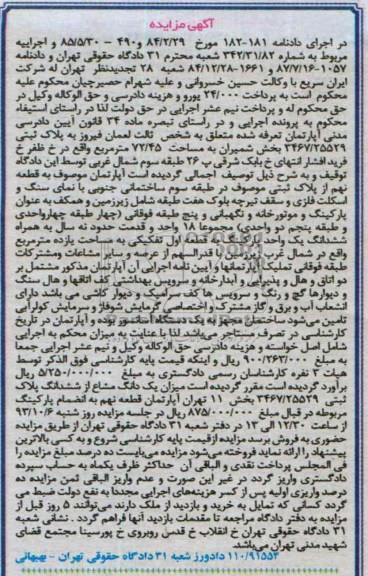 آگهی مزایده
در اجرای دادنامه ۱۸۱-۱۸۲ مورخ ۸۴/۲/۲۹ و ۴۹۰ - ۸۵/۵/۳۰ و اجراییه
مربوط به شماره ۳۴۲/۳۱/۸۲ محکوم شعبه ۳۱ دادگاه حقوقی تهران و دادنامه
۱۰۵۷-۸۷/۷/۱۶ و ۱۶۶۱-۸۴/۱۲/۲۸ شعبه ۲۸ تجدیدنظر تهران له شرکت
ایران سریع با وکالت حسین خسروانی و علیه شهرام حصیرچیان محکوم علیه
محکوم است به پرداخت ۲۴/۰۰۰ یورو و هزینه دادرسی و حق الوکاله وکیل در
حق محکوم له و پرداخت نیم عشر اجرایی در حق دولت لذا در راستای استیفاء
محکوم به پرونده اجرایی و در راستای تبصره ماده ۳۴ قانون آیین دادرسی
مدنی آپارتمان تعرفه شده متعلق به شخص ثالث لعمان فیروز به پلاک ثبتی
۳۴۶۷/۲۵۵۲۹ بخش شمیران به مساحت ۷۲/۴۵ مترمربع واقع در خ ظفر خ
فریدافشار انتهای خ بابک شرقی پ ۲۶ طبقه سوم شمال غربی توسط این دادگاه
توقیف و به شرح ذیل توصیف اجمالی گردیده است آپارتمان موصوف به قطعه
نهم از پلاک ثبتی موصوف در طبقه سوم ساختمانی جنوبی با نمای سنگ و
اسکلت فلزی و سقف تیرچه بلوک هفت طبقه شامل زیرزمین و همکف به عنوان
پارکینگ و موتورخانه و نگهبانی و پنج طبقه فوقانی (چهار طبقه چهارواحدی
و طبقه پنجم دو واحدی) مجموعا ۱۸ واحد و قدمت حدود نه سال به همراه
ششدانگ یک واحد پارکینگ قطعه اول تفکیکی به مساحت یازده مترمربع
واقع در شمال غرب زیرزمین با قدرالسهم از عرصه و سایر مشاعات ومشترکات
طبقه فوقانی تملیک آپارتمانها و آیین نامه اجرایی آن آپارتمان مذکور مشتمل بر
دو اتاق و هال و پذیرایی و آبدارخانه و سرویس بهداشتی کف اتاقها و هال سنگ
و دیوارها گچ و رنگ و سرویس ها کف سرامیک و دیوار کاشی می باشد دارای
انشعاب آب و برق و گاز مشترک و اختصاصی گرمایش شوفاژ و سرمایش کولرآبی
تامین می‌شود ساختمان مجهز به یک دستگاه آسانسور بوده و آپارتمان در تاریخ
کارشناسی در تصرف مستاجر می‌باشد لذا با عنایت به میزان محکوم به اجرایی
شامل اصل خواسته و هزینه دادرسی حق الوکاله وکیل و نیم عشر اجرایی جمعا
به مبلغ ۹۰۰/۲۶۳/۰۰۰ ریال و اینکه قیمت پایه کارشناسی فوق الذکر توسط
هیات ۳ نفره کارشناسان رسمی دادگستری به مبلغ ۵/۲۵۰/۰۰۰/۰۰۰ ریال
برآورد گردیده است مقرر گردیده است میزان یک دانگ مشاع از ششدانگ پلاک
ثبتی ۳۴۶۷/۲۵۵۲۹ بخش ۱۱ تهران آپارتمان قطعه نهم به انضمام پارکینگ
مربوطه در قبال مبلغ ۸۷۵/۰۰۰/۰۰۰ ریال در جلسه مزایده روز شنبه ۹۳/۱۰/۶
از ساعت ۱۲/۳۰ الی ۱۳ در دفتر شعبه ۳۱ دادگاه حقوقی تهران از طریق مزایده
حضوری به فروش برسد مزایده ازقیمت پایه کارشناسی شروع و به کسی بالاترین
پیشنهاد را ارائه نماید فروخته می‌شود مزایده می‌بایست ده درصد مبلغ مزایده را
فی المجلس پرداخت نقدی و الباقی آن حداکثر ظرف یکماه به حساب سپرده
دادگستری واریز گردد در غیر این صورت و عدم واریز الباقی ثمن مزایده ده
درصد واریزی اولیه پس از کسر هزینه‌های اجرایی مجددا به نفع دولت ضبط می
گردد کسانی که تمایل به خرید و بازدید از ملک دارند می‌توانند ۵ روز قبل از
مزایده به دفتر دادگاه مراجعه تا مقدمات بازدید آنها فراهم گردد . نشانی شعبه
۳۱ دادگاه حقوقی تهران خ انقلاب خ قدس روبروی خ پورسینا مجتمع قضای
شهید مدنی تهران می‌باشد
۱۱۰/۹۱۵۵۲ دادورز شعبه ۳۱ دادگاه حقوقی تهران - بهبهانی